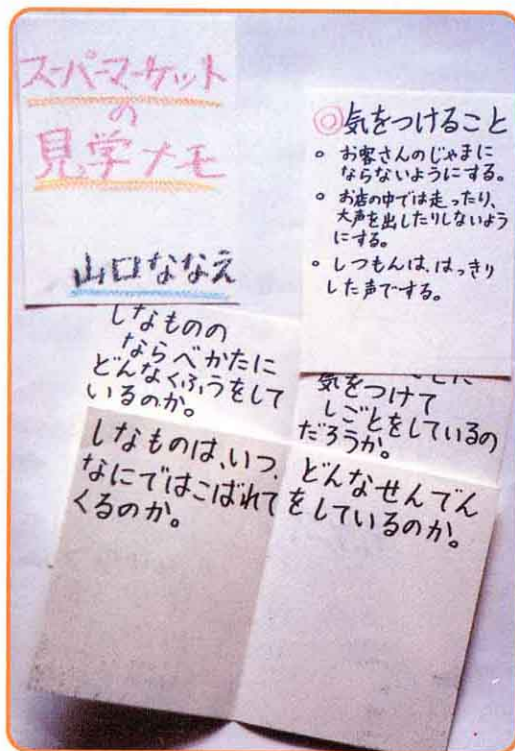 スーパーマーケット
の
見学メモ
山口ななえ
◎気をつけること
。お客さんのじゃまに
ならないようにする。
。お店の中では走ったり、
大声を出したりしないよう
にする。
。しつもんは、はっきり
した声でする。
しなものの
ならべかたに
どんなくふうをして
いるのか。
気をつけて
しごとをしているの
だろうか。
しなものは、いつ、
なにではこばれて
くるのか。
どんなせんでん
をしているのか。